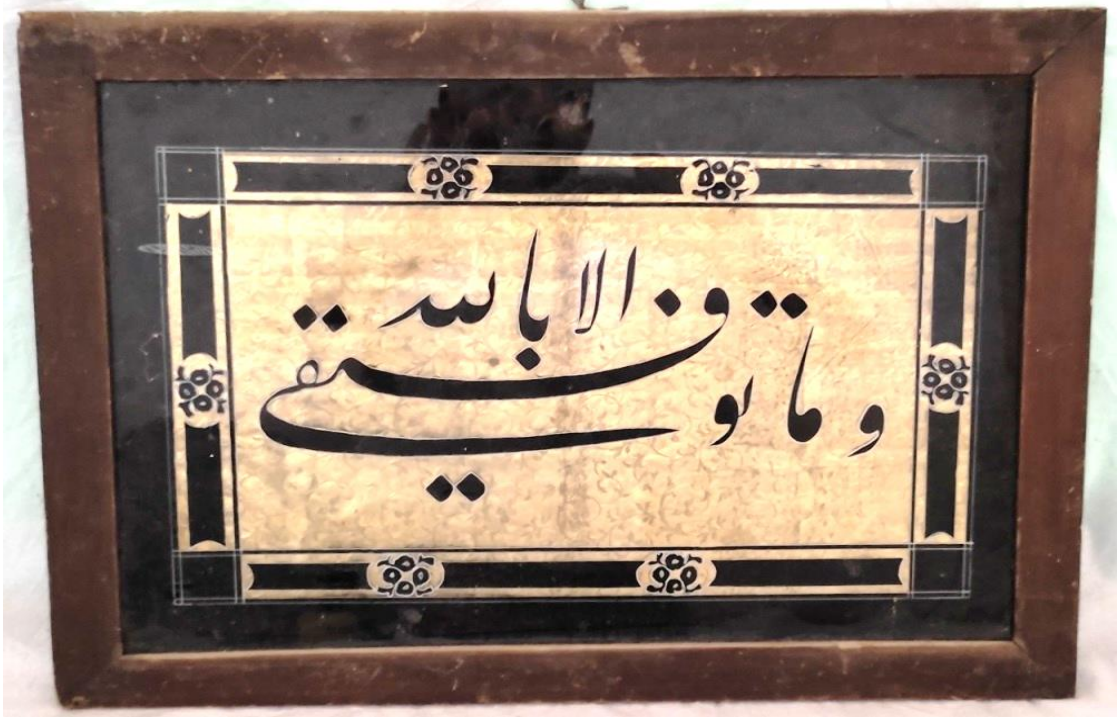 و ما توفیقی الا بالله